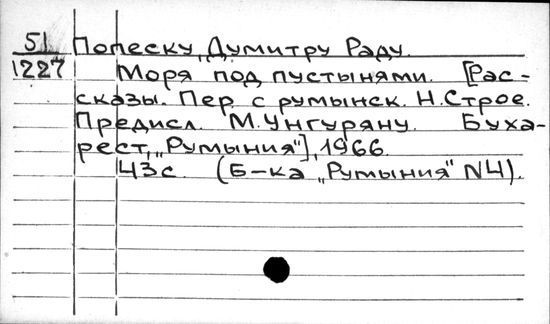 51 Попеску, Думитру Раду.
1227 Моря под пустынями. [Рас-
сказы. Пер. с румынск. Н.Строе.
Предисл. М.Унгуряну. Буха-
рест, „Румыния"], 1966.
43с. (Б-ка „Румыния" N4).